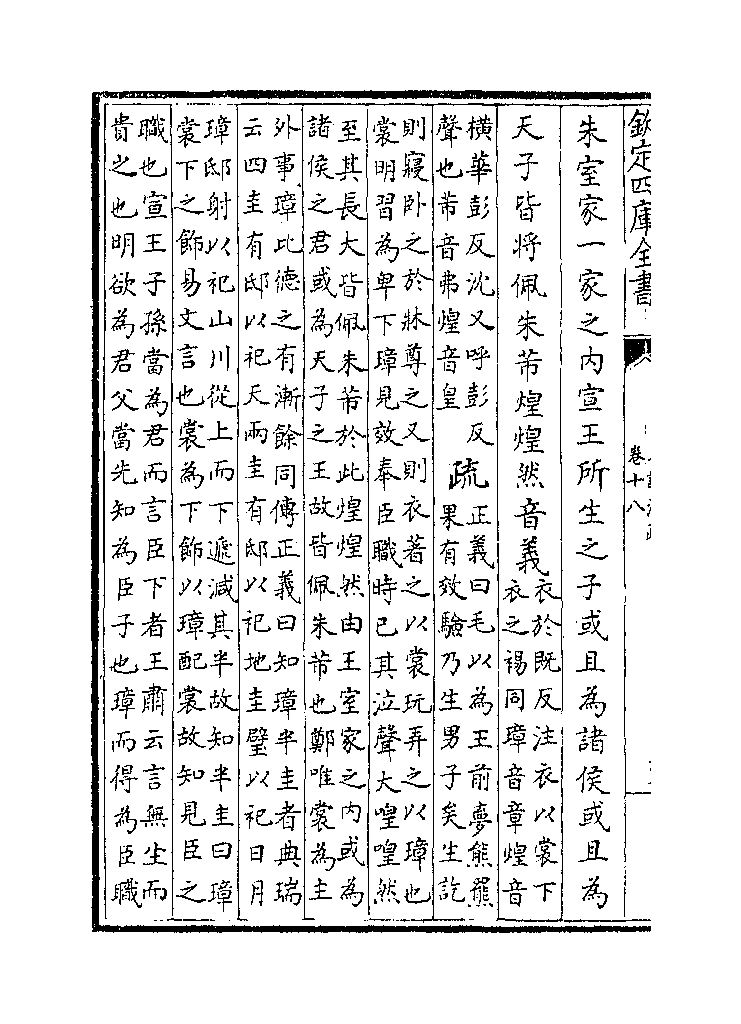 欽定四庫全書
卷十八
朱室家一家之内宣王所生之子或且為諸侯或且為
天子皆將佩朱芾煌煌然音義
衣於既反注衣以裳下
衣之裼同璋音章煌音
橫華彭反沈又呼彭反
聲也芾音弗煌音皇
疏
正義曰毛以為王前夢熊羆
果有效驗乃生男子矣生訖
則寢卧之於牀尊之又則衣著之以裳玩弄之以璋也
裳明習為卑下璋見效奉臣職時已其泣聲大喤喤然
至其長大皆佩朱芾於此煌煌然由王室家之内或為
諸侯之君或為天子之王故皆佩朱芾也鄭唯裳為主
外事璋比德之有漸餘同傳正義曰知璋半圭者典瑞
云四圭有邸以祀天兩圭有邸以祀地圭璧以祀日月
璋邸射以祀山川從上而下遞減其半故知半圭曰璋
裳下之飾易文言也裳為下飾以璋配裳故知見臣之
職也宣王子孫當為君而言臣下者王肅云言無生而
貴之也明欲為君父當先知為臣子也璋而得為臣職